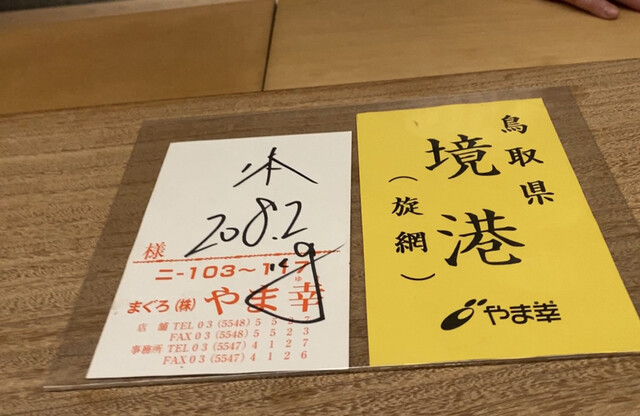 本
208.2
様
ニ-103~117
まぐろ(株) やま幸
店舗 TEL 03 (5548) 5 5 2
FAX 03 (5548) 5 5 2 3
事務所 TEL 03 (5547) 4 1 2 7
FAX 03 (5547) 4 1 2 6
鳥取県
境港
(旋網)
やま幸